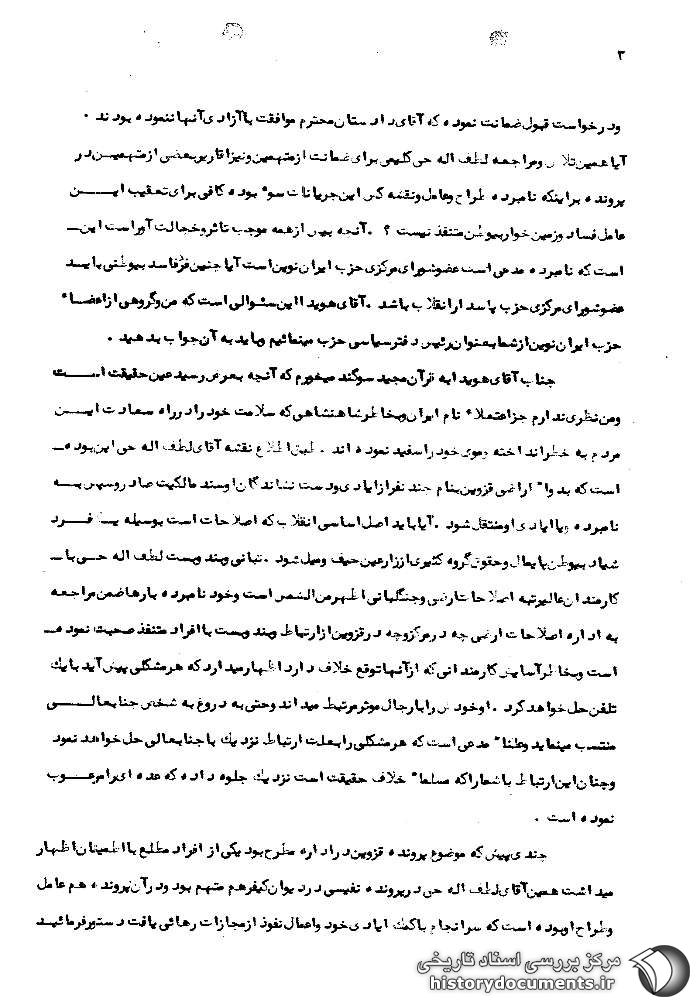 ۳
ودرخواست قبول ضمانت نموده که آقای دادستان محترم موافقت با آزادی آنها ننموده بودند .
آیا همین تلاش ومراجعه لطف اله حی کلیمی برای ضمانت از متهمین ونیز اقاریر بعضی از متهمین در
پرونده براینکه نامبرده طراح وعامل ونقشه کش این جریانات سوء بوده کافی برای تعقیب ایـــــن
عامل فساد وزمین خوار بیوطن متنفذ نیست ؟ . آنچه بیش از همه موجب تاثر وخجالت آور است ایـن
است که نامبرده مدعی است عضو شورای مرکزی حزب ایران نوین است آیا چنین فرد فاسد بیوطنی بایـــد
عضو شورای مرکزی حزب پاسدار انقلاب باشد . آقای هویدا این سئوالی است که من وگروهی از اعضاء
حزب ایران نوین از شما بعنوان رئیس دفتر سیاسی حزب مینمائیم وباید به آن جواب بدهید .
جناب آقای هویدا به قرآن مجید سوگند میخورم که آنچه بعرض رسید عین حقیقت اســـت
ومن نظری ندارم جز اعتلاء نام ایران وبخاطر شاهنشاهی که سلامت خود را در راه سعادت ایـــن
مردم به خطر انداخته وموی خود را سفید نموده اند . طبق اطلاع نقشه آقای لطف اله حی این بوده
است که بدواً اراضی قزوین بنام چند نفر از ایادی ودست نشاندگان او سند مالکیت صادر وسپس بــه
نامبرده ویا ایادی او منتقل شود . آیا باید اصل اساسی انقلاب که اصلاحات است بوسیله یــک فـــرد
شیاد بیوطن پایمال وحقوق گروه کثیری از زارعین حیف ومیل شود . تبانی وبند وبست لطف اله حــی بـا
کارمندان عالیرتبه اصلاحات ارضی وجنگلبانی اظهر من الشمس است وخود نامبرده بارها ضمن مراجعه
به اداره اصلاحات ارضی چه در مرکز وچه در قزوین از ارتباط وبند وبست با افراد متنفذ صحبت نموده
است وبخاطر آسایش کارمندانی که از آنها توقع خلاف دارد اظهار میدارد که هر مشکلی پیش آید با یک
تلفن حل خواهد کرد . او خودش را با رجال موثر مرتبط میداند وحتی به دروغ به شخص جنابعالــــی
منتسب مینماید و مدعی است که هر مشکلی را بعلت ارتباط نزدیک با جنابعالی حل خواهد نمود
وچنان این ارتباط با شما را که مسلماً خلاف حقیقت است نزدیک جلوه داده که عده ای را مرعـــوب
نموده است .
چندی پیش که موضوع پرونده قزوین در اداره مطرح بود یکی از افراد مطلع با اطمینان اظهار
میداشت همین آقای لطف اله حی در پرونده نفیسی در دیوان کیفر هم متهم بود ودر آن پرونده هم عامل
وطراح او بوده است که سرانجام با کمک ایادی خود واعمال نفوذ از مجازات رهائی یافت دستور فرمائیـــد
مرکز بررسی اسناد تاریخی
historydocuments.ir